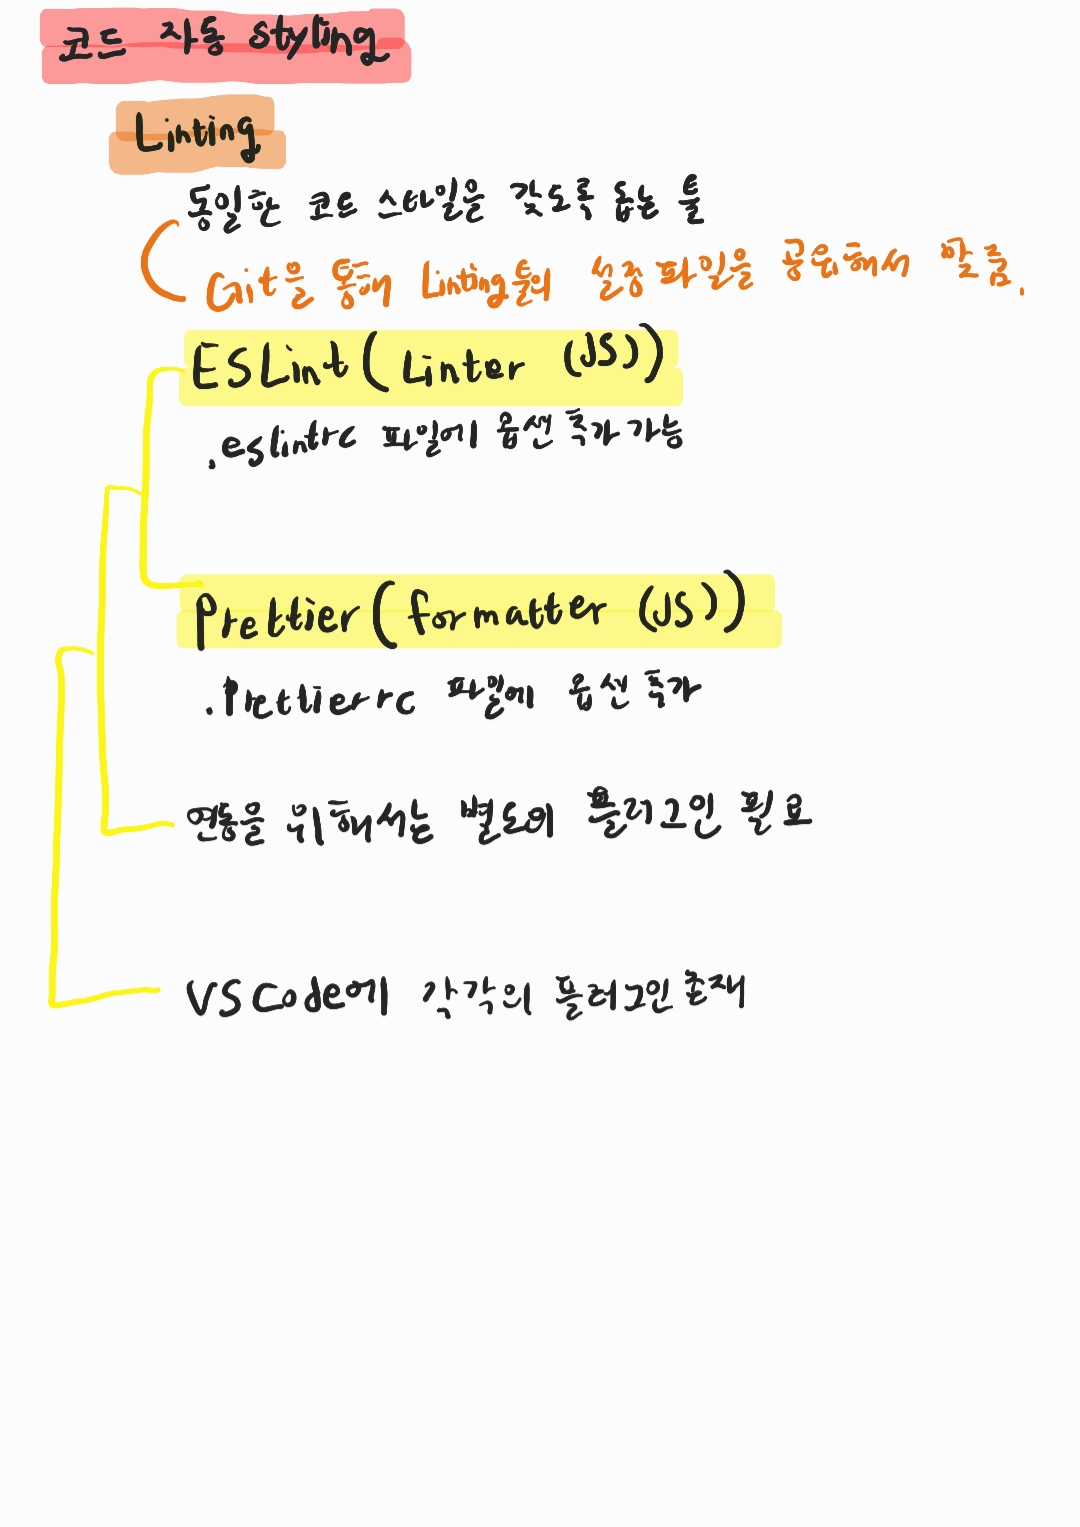 코드 자동 styling
Linting
동일한 코드 스타일을 갖도록 돕는 툴
Git을 통해 Linting툴의 설정파일을 공유해서 맞춤.
ESLint(Linter (JS))
.eslintrc 파일에 옵션 추가 가능
Prettier(formatter (JS))
.Prettierrc 파일에 옵션 추가
연동을 위해서는 별도의 플러그인 필요
VSCode에 각각의 플러그인 존재